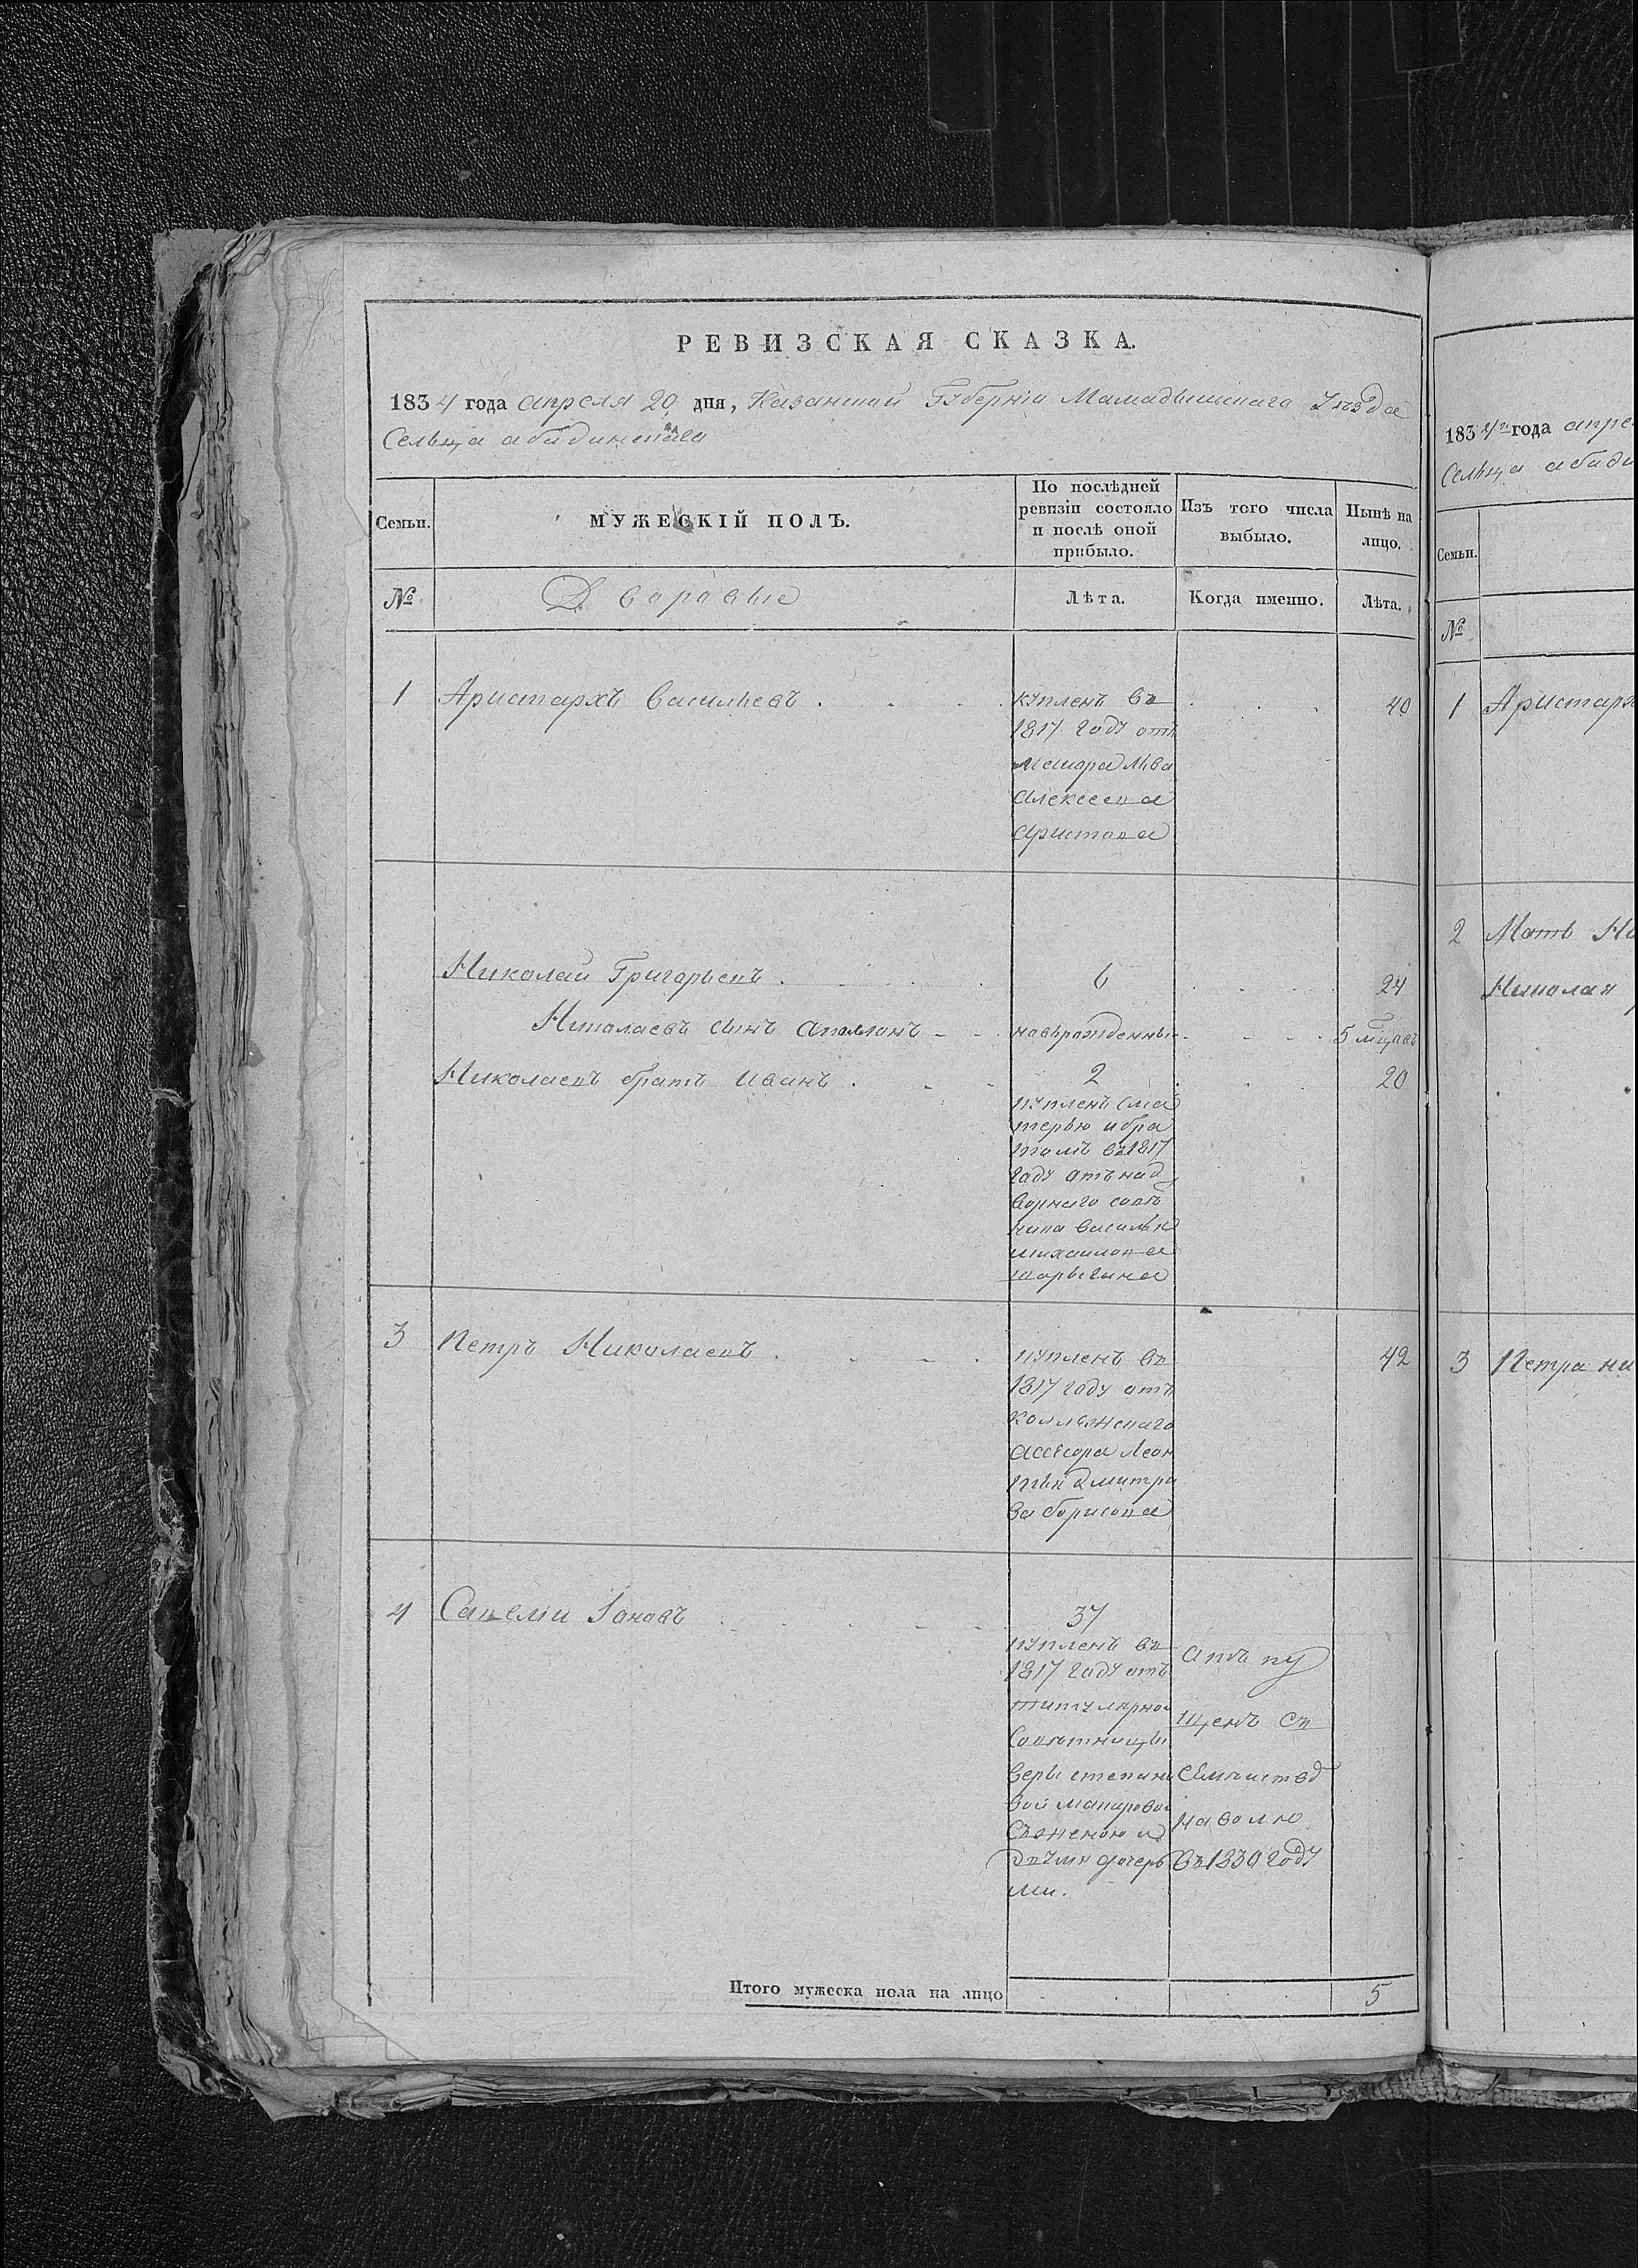 РЕВИЗСКАЯ СКАЗКА.
1834 года апреля 20 дня, Казанской Губерніи Мамадышскаго Уѣзда
Сельца абадинскаго
Семьи.
МУЖЕСКІЙ ПОЛЪ.
По послѣдней
ревизіи состояло
и послѣ оной
прибыло.
Изъ того числа
выбыло.
Нынѣ на
лицо.
№
Дворовые
Лѣта.
Когда именно.
Лѣта.
1 Аристархъ Васильевъ . . . . купленъ въ . . . 40
1817 году отъ
маиора Льва
Алексеева
аристова
Николай Григорьевъ . . . . 6 . . . 24
Николаевъ сынъ Аполлонъ - - новърожденный - - - 5 мцовъ
Николаевъ братъ Иванъ . - - 2 . . . 20
купленъ сма
терью ибра
томъ въ1817
году отънад
ворнаго совѣ
ника василья
михаилова
шарыгина
3 Петръ Николаевъ . . - . купленъ въ 42
1817 году отъ
коллежскаго
ассесора Леон
тья дмитри
ва борисова
4 Савелий Іоновъ . . . - - 37
купленъ въ
1817 году отъ
титулярной
Совѣтницы
веры степано
вой макаровой
Съженою и
двумя дочерь
ми.
отъ пу
щенъ съ
Семьиством
наволю
въ1830 году
Итого мужеска пола на лицо . . . 5
1834го года апре
Сельца абади
Семьи.
№
1 Аристарх
2 Мать Ни
Николая
3 Петра ни